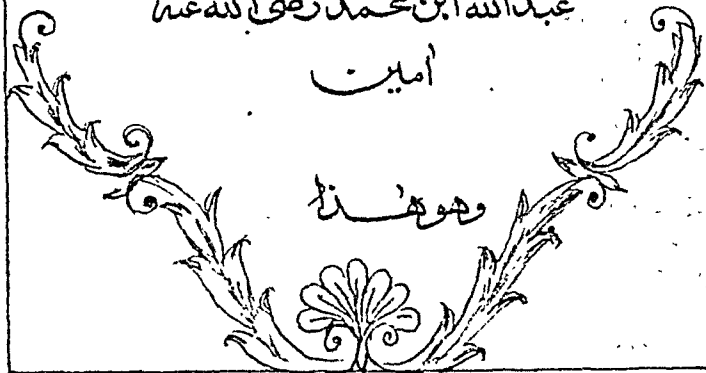 عبد الله ابن محمد رضى الله عنه
امين
وهو هٰذا